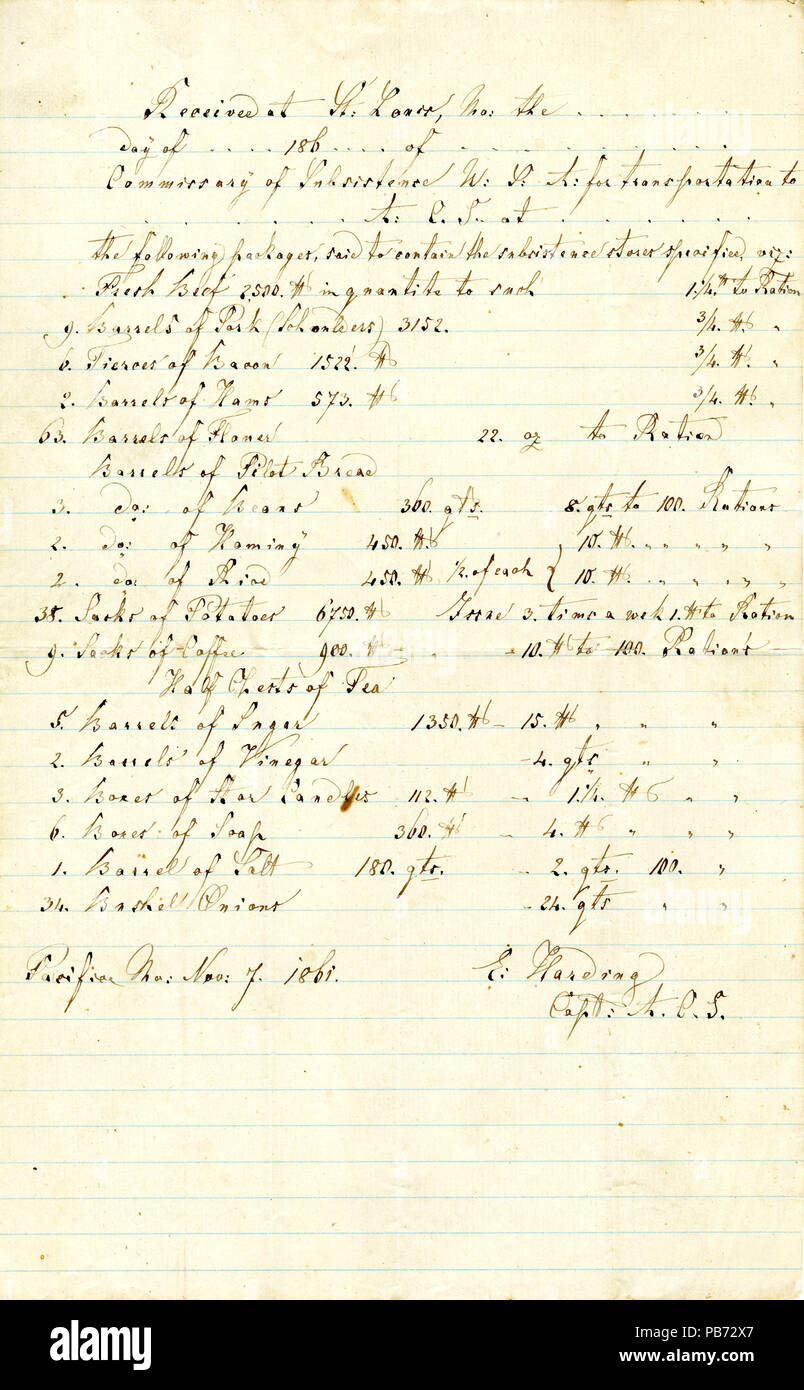 Received at St: Louis, Mo: the . . . . . . .
day of . . . . 186 . . . . of . . . . . . . . . . . . .
Commissary of Subsistence U: S: A: for transportation to
. . . . . . . . . . . . A: C. S. at . . . . . . . . .
the following packages, said to contain the subsistence stores specified, viz:
Fresh Beef 2,500. ℔ in quantite to such 1 1/4. ℔ to Ration
9. Barrels of Pork (Schoulders) 3152. 3/4. ℔. "
6. Tierces of Bacon 1522. ℔ 3/4. ℔. "
2. Barrels of Hams 573. ℔ 3/4. ℔. "
63. Barrels of Flouer 22. oz to Ration
Barrels of Pilot Bread
3. do: of Beans 360. qts. 8. qts to 100. Rations
2. do: of Hominy 450. ℔ } 10. ℔. " " " "
2. do: of Rice 450. ℔ 1/2. of each { 10. ℔. " " " "
38. Sacks of Potatoes 6750. ℔ Issue 3. tims a wek 1. ℔ to Ration
9. Sacks of Coffee - 900. ℔ - - 10. ℔ to 100. Ration's -
Half Chests of Tea
5. Barrels of Sugar 1350. ℔ - 15. ℔ " " "
2. Barrels of Vinegar - 4. qts " "
3. Boxes of Star Candles 112. ℔ - 1 1/4. ℔ " "
6. Boxes of Soap 360. ℔ - 4. ℔ " " "
1. Barrel of Salt 180. qts. - 2. qts. 100. "
34. Bushel Onions - 24. qts " "
Pacific Mo: Nov: 7. 1861. E: Harding
Capt: A. C. S.
alamy
alamy
Image ID: PB72X7
www.alamy.com